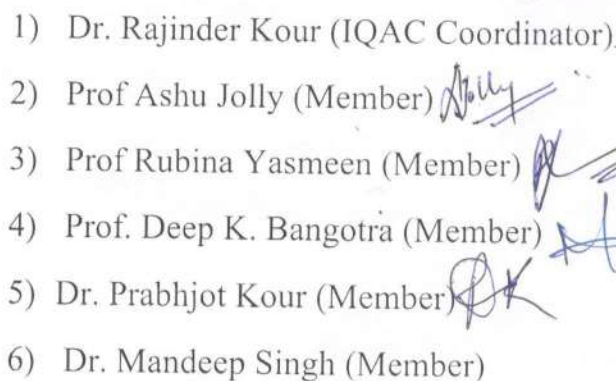 1) Dr. Rajinder Kour (IQAC Coordinator)
2) Prof Ashu Jolly (Member) Jolly
3) Prof Rubina Yasmeen (Member)
4) Prof. Deep K. Bangotra (Member)
5) Dr. Prabhjot Kour (Member)
6) Dr. Mandeep Singh (Member)